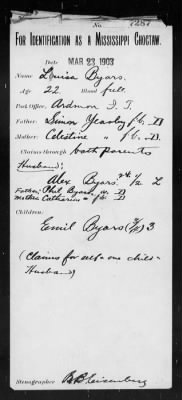 No. 7287
FOR IDENTIFICATION AS A MISSISSIPPI CHOCTAW.
Date MAR 23 1903
Name Louisa Byars.
Age 22 Blood full.
Post Office, Ardmore I. T.
Father: Simon Yearby f.b. D
Mother: Celestine " f.b. D.
Claims through both parents
Husband:
Alex Byars. 24 1/2 L
Father: Phil Byars, w. D
Mother Catharine " f.b. D
Children:
Emil Byars (3/4) 3
(Claims for self & one child -
Husband)
Stenographer